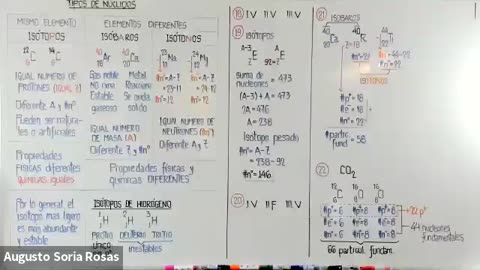 TIPOS DE NÚCLIDOS
MISMO ELEMENTO
ISÓTOPOS
12 C 6
14 C 6
IGUAL NÚMERO DE
PROTONES (IGUAL Z)
Diferente A y #n°
Pueden ser natura-
les o artificiales
Propiedades
FÍSICAS diferentes
QUÍMICAS iguales
Por lo general el
isótopo más ligero
es más abundante
y estable
ELEMENTOS DIFERENTES
ISÓBAROS
40 Ar 18
40 Ca 20
Gas noble Metal
No Reacciona
Estable
gaseoso sólido
IGUAL NÚMERO
DE MASA (A)
Diferente Z y #n°
ISÓTONOS
23 Na 11
24 Mg 12
#n°=A-Z
=23-11
#n°=12
#n°=A-Z
=24-12
#n°=12
IGUAL NÚMERO DE
NEUTRONES (#n°)
Diferente A y Z
Propiedades físicas y
químicas DIFERENTES
ISÓTOPOS DE HIDRÓGENO
1 H 2 H 3 H
PROTIO DEUTERIO TRITIO
ÚNICO
inestables
18 I V II V III V
19 ISÓTOPOS
A-3 E 92
A E 92=Z
suma de
nucleones = 473
(A-3) + A = 473
2A = 476
A = 238
Isótopo pesado
#n° = A-Z
= 238-92
#n° = 146
20 I V II F III V
21 ISÓBAROS
ISÓTONOS
#n°=22
#n°=44-22
#n°=22
#p+= 18
#e-= 18
#n°= 22
#partíc
fund = 58
22 CO2
12 C 6
16 O 8
16 O 8
#p+=6 #p+=8 #p+=8
#n°=6 #n°=8 #n°=8
#e-=6 #e-=8 #e-=8
→22 p+
44 nucleones
fundamentales
66 partícul. fundam.
Augusto Soria Rosas